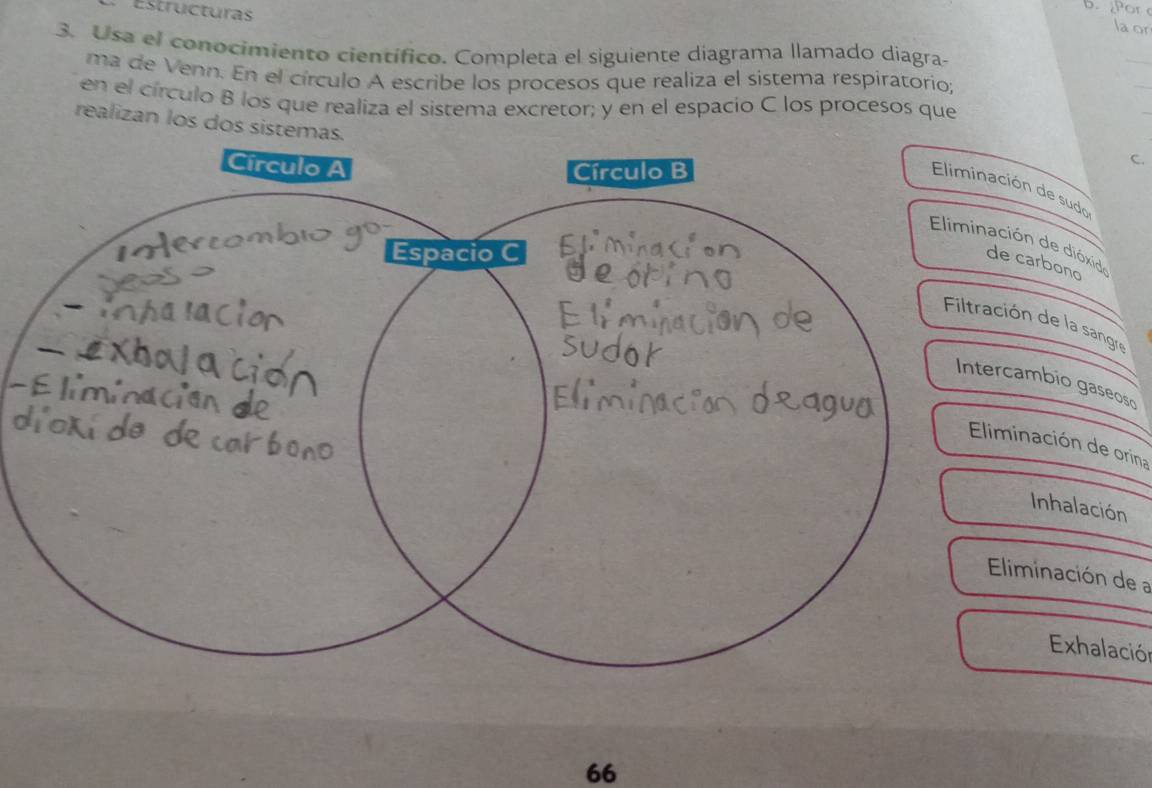 Estructuras
3. Usa el conocimiento científico. Completa el siguiente diagrama llamado diagra-
ma de Venn. En el círculo A escribe los procesos que realiza el sistema respiratorio;
en el círculo B los que realiza el sistema excretor; y en el espacio C los procesos que
realizan los dos sistemas.
Círculo A
Círculo B
Espacio C
intercambio
- inhalacion
- exhalación
- Eliminacion de
dioxido de carbono
Eliminacion
Eliminacion de
sudor
Eliminacion de agua
Eliminación de sudor
Eliminación de dióxido
de carbono
Filtración de la sangre
Intercambio gaseoso
Eliminación de orina
Inhalación
Eliminación de a
Exhalación
b. ¿Por
la
c.
66